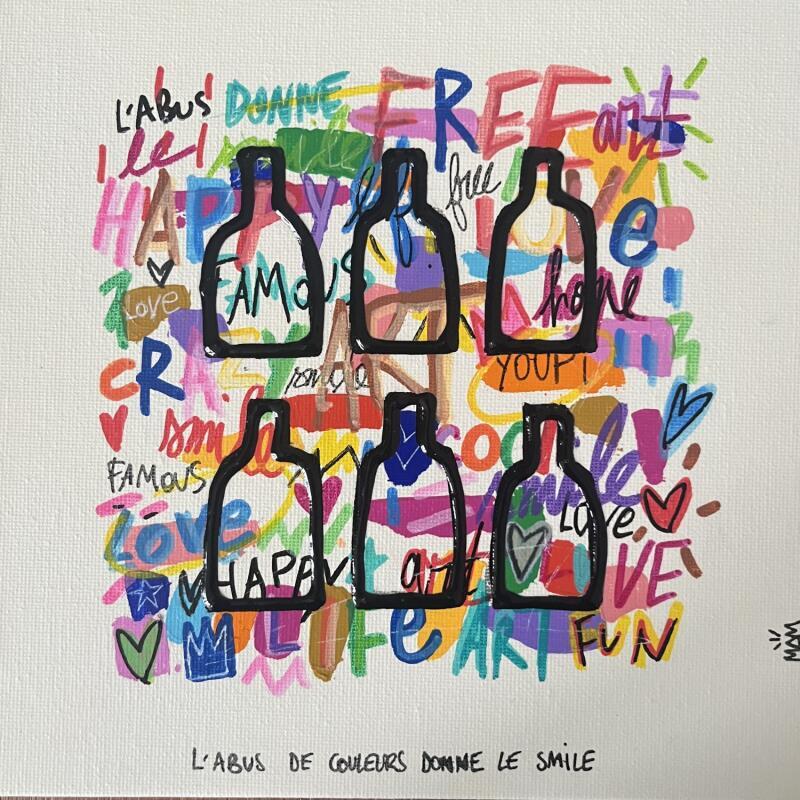 L'ABUS DONNE FREE art
le
HAPPY life free LOVE
FAMOUS home
LOVE
ART
CRAZY smile YOUPI
smile cool smile
FAMOUS
LOVE LOVE
HAPPY art LOVE
LIFE ART FUN
L'ABUS DE COULEURS DONNE LE SMILE